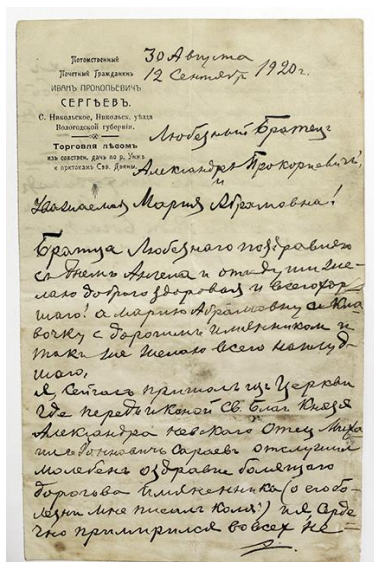 Потомственный
Почетный Гражданинъ
ИВАНЪ ПРОКОПЬЕВИЧЪ
СЕРГѢЕВЪ.
С. Никольское, Никольск. уѣзда
Вологодской губерніи.
Торговля лѣсомъ
изъ собствен. дачъ по р. Унжѣ
и притокамъ Сѣв. Двины.
30 Августа
12 Сентябр 1920 г.
Любезный Братец
Александръ Прокопиевич!
и
Уважаемая Мария Абрамовна!
Братца Любезного поздравляю
съ Днемъ Ангела и отъ души же
лаю доброго здоровья и всего хор
шаго! а Марию Абрамовну и Кла
вочку с дорогим имянником и
также желаю всего наилуд
шаго,
Я, Сейчас пришол из Церкви
где передъ иконой Св. Благ. Князя
Александра невского Отец Миха
ил Сараев отслужил
молебен о здравие болящаго
дорогова Имяненника (о его бо
лезни мне писал Коля) и я Серде
чно примирился во всех не-